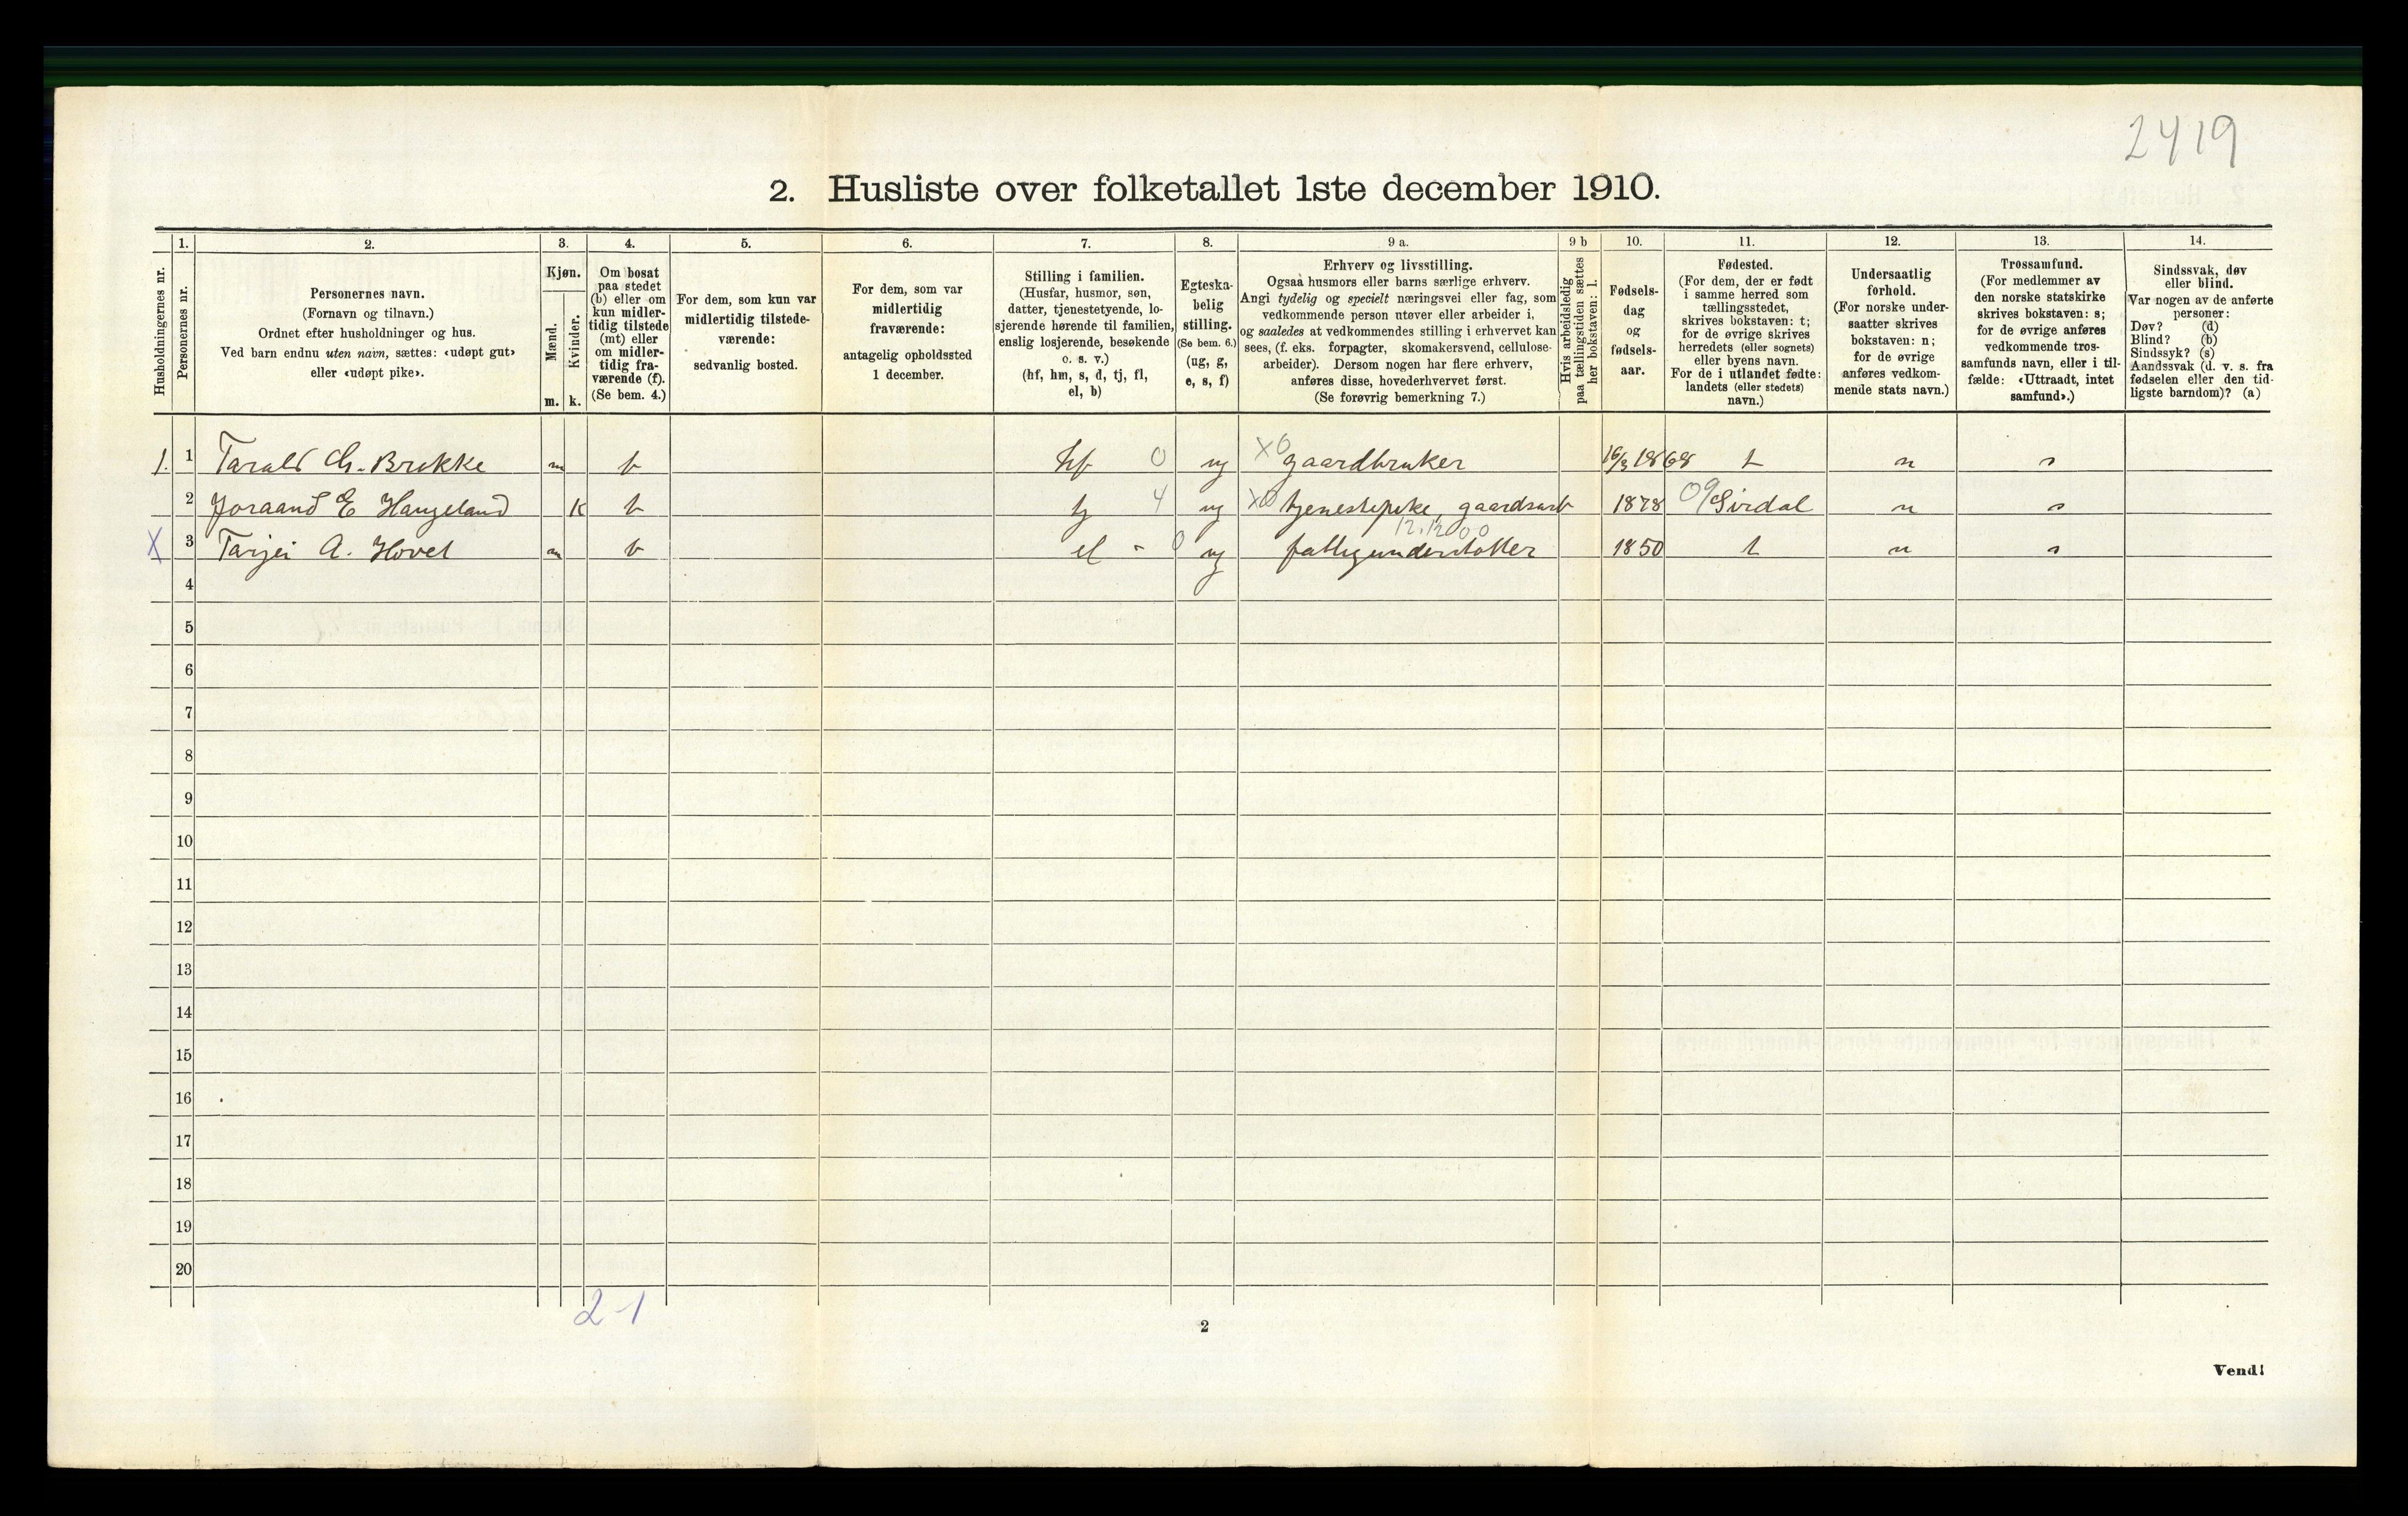 2419
2. Husliste over folketallet 1ste december 1910.
Husholdningernes nr.
1.
Personernes nr.
2.
Personernes navn.
(Fornavn og tilnavn.)
Ordnet efter husholdninger og hus.
Ved barn endnu uten navn, sættes: «udøpt gut»
eller «udøpt pike».
3.
Kjøn.
Mænd.
Kvinder.
m. k.
4.
Om bosat
paa stedet
(b) eller om
kun midler-
tidig tilstede
(mt) eller
om midler-
tidig fra-
værende (f).
(Se bem. 4.)
5.
For dem, som kun var
midlertidig tilstede-
værende:
sedvanlig bosted.
6.
For dem, som var
midlertidig
fraværende:
antagelig opholdssted
1 december.
7.
Stilling i familien.
(Husfar, husmor, søn,
datter, tjenestetyende, lo-
sjerende hørende til familien,
enslig losjerende, besøkende
o. s. v.)
(hf, hm, s, d, tj, fl,
el, b)
8.
Egteska-
belig
stilling.
(Se bem. 6.)
(ug, g,
e, s, f)
9 a.
Erhverv og livsstilling.
Ogsaa husmors eller barns særlige erhverv.
Angi tydelig og specielt næringsvei eller fag, som
vedkommende person utøver eller arbeider i,
og saaledes at vedkommendes stilling i erhvervet kan
sees, (f. eks. forpagter, skomakersvend, cellulose-
arbeider). Dersom nogen har flere erhverv,
anføres disse, hovederhvervet først.
(Se forøvrig bemerkning 7.)
9 b
Hvis arbeidsledig
paa tællingstiden sættes
her bokstaven: l.
10.
Fødsels-
dag
og
fødsels-
aar.
11.
Fødested.
(For dem, der er født
i samme herred som
tællingsstedet,
skrives bokstaven: t;
for de øvrige skrives
herredets (eller sognets)
eller byens navn.
For de i utlandet fødte:
landets (eller stedets)
navn.)
12.
Undersaatlig
forhold.
(For norske under-
saatter skrives
bokstaven: n;
for de øvrige
anføres vedkom-
mende stats navn.)
13.
Trossamfund.
(For medlemmer av
den norske statskirke
skrives bokstaven: s;
for de øvrige anføres
vedkommende tros-
samfunds navn, eller i til-
fælde: «Uttraadt, intet
samfund».)
14.
Sindssvak, døv
eller blind.
Var nogen av de anførte
personer:
Døv? (d)
Blind? (b)
Sindssyk? (s)
Aandssvak (d. v. s. fra
fødselen eller den tid-
ligste barndom)? (a)
1. 1 Tarald Ch. Brokke m b hf 0 ug X0 gaardbruker 16/3 1868 t n s
2 Joraand E Haugeland K b tj 4 ug X0 tjenestepike, gaardsarb 1878 09 Sirdal n s
X 3 Tarjei A. Hovet m b el - 0 ug fattigunderstøttet 1850 t n s
4
5
6
7
8
9
10
11
12
13
14
15
16
17
18
19
20
2-1
2
Vend!